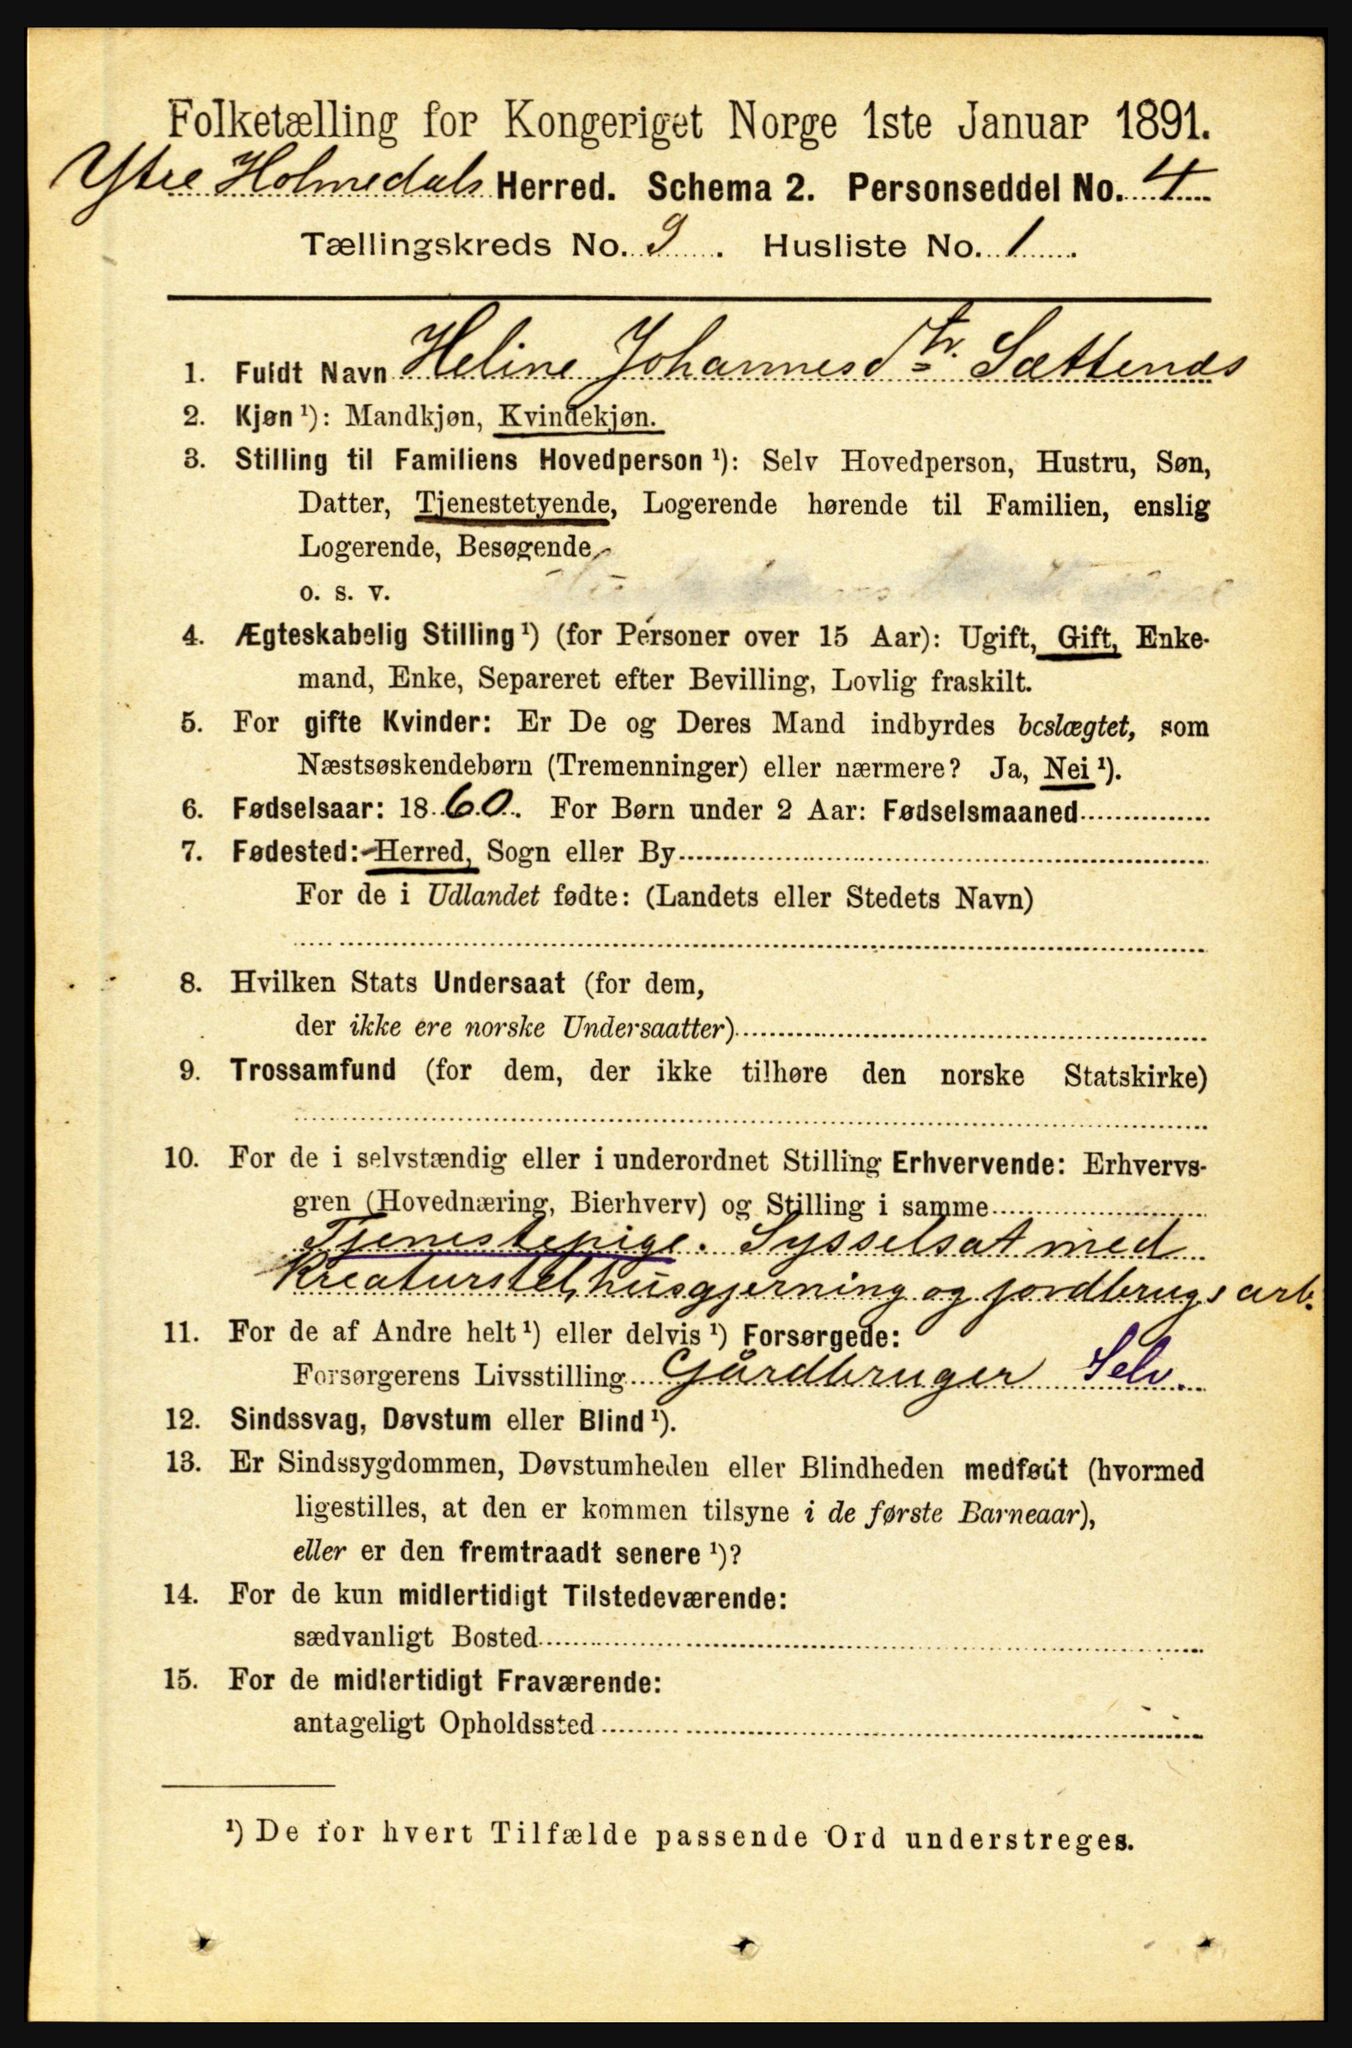 Folketælling for Kongeriget Norge 1ste Januar 1891.
Ytre Holmedals Herred. Schema 2. Personseddel No. 4
Tællingskreds No. 9. Husliste No. 1.
1. Fuldt Navn Heline Johannesdtr. Sættenæs
2. Kjøn ¹): Mandkjøn, Kvindekjøn.
3. Stilling til Familiens Hovedperson ¹): Selv Hovedperson, Hustru, Søn,
Datter, Tjenestetyende, Logerende hørende til Familien, enslig
Logerende, Besøgende
o. s. v.
4. Ægteskabelig Stilling ¹) (for Personer over 15 Aar): Ugift, Gift, Enke-
mand, Enke, Separeret efter Bevilling, Lovlig fraskilt.
5. For gifte Kvinder: Er De og Deres Mand indbyrdes beslægtet, som
Næstsøskendebørn (Tremenninger) eller nærmere? Ja, Nei ¹).
6. Fødselsaar: 1860. For Børn under 2 Aar: Fødselsmaaned
7. Fødested: Herred, Sogn eller By
For de i Udlandet fødte: (Landets eller Stedets Navn)
8. Hvilken Stats Undersaat (for dem,
der ikke ere norske Undersaatter)
9. Trossamfund (for dem, der ikke tilhøre den norske Statskirke)
10. For de i selvstændig eller i underordnet Stilling Erhvervende: Erhvervs-
gren (Hovednæring, Bierhverv) og Stilling i samme
Tjenestepige. Sysselsat med
Kreaturstel, husgjerning og jordbrugsarb.
11. For de af Andre helt ¹) eller delvis ¹) Forsørgede:
Forsørgerens Livsstilling Gårdbruger Selv.
12. Sindssvag, Døvstum eller Blind ¹).
13. Er Sindssygdommen, Døvstumheden eller Blindheden medfødt (hvormed
ligestilles, at den er kommen tilsyne i de første Barneaar),
eller er den fremtraadt senere ¹)?
14. For de kun midlertidigt Tilstedeværende:
sædvanligt Bosted
15. For de midlertidigt Fraværende:
antageligt Opholdssted
¹) De for hvert Tilfælde passende Ord understreges.